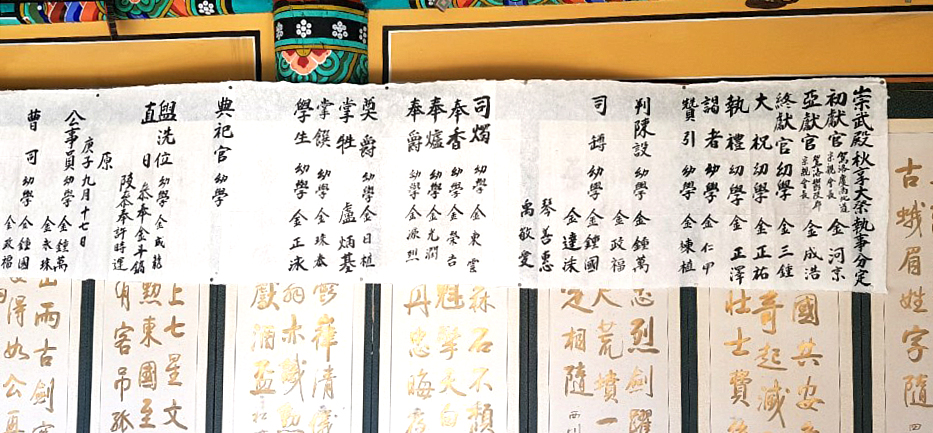 崇武殿秋享大祭執事分定
初獻官 駕洛慶南地道宗親會長 金河京
亞獻官 駕洛 宗親會長 金成浩
終獻官 幼學 金三鍾
大祝 幼學 金正祐
執禮 幼學 金正澤
謁者 幼學 金仁甲
贊引 幼學 金東植
判陳設 幼學 金鍾萬
金政福
司罇 幼學 金鍾國
金達洙
琴善惠
禹敬雯
司燭 幼學 金東雲
奉香 幼學 金榮吉
奉爐 幼學 金光潤
奉爵 幼學 金源烈
奠爵 幼學 金日植
掌牲 盧炳基
掌饌 幼學 金珠泰
學生 幼學 金正泳
典祀官 幼學
盥洗位 幼學 金成
直日 參奉 金斗鎬
陵參奉 許時運
原
庚子九月十七日
公事員 幼學 金鍾萬
金永珠
曺司 幼學 金鍾國
金政福
古蛾眉姓字隨
國共安
奇起滅
壯士費
忠烈劍躍
大荒墳一
相隨
石不頹
魁擎大白
丹忠晦
崔清
赤鐵勲
戲酒盃
上七星文
勲東國至
客吊孤
山兩古劍
得如公再